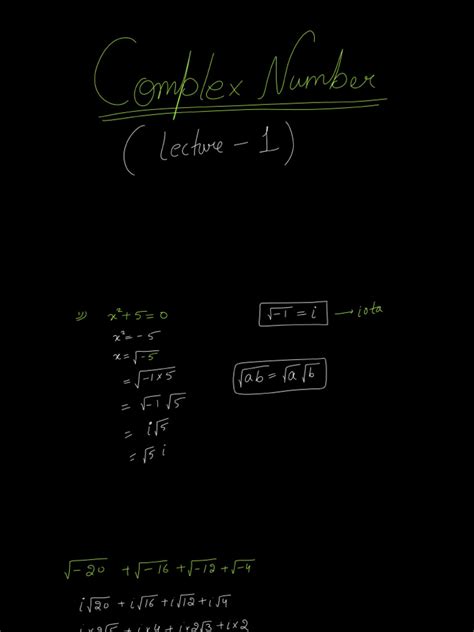 Complex Number
(Lecture - 1)
⇒ x²+5=0
x²=-5
x=√-5
=√-1×5
= √-1 √5
= i√5
= √5 i
√-1 = i → iota
√ab = √a √b
√-20 + √-16 + √-12 + √-4
i√20 + i√16 + i√12 + i√4
i×2√5 + i×4 + i×2√3 + i×2